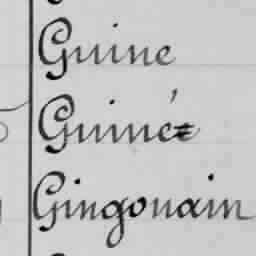 Guine
Guiné
Gingouain